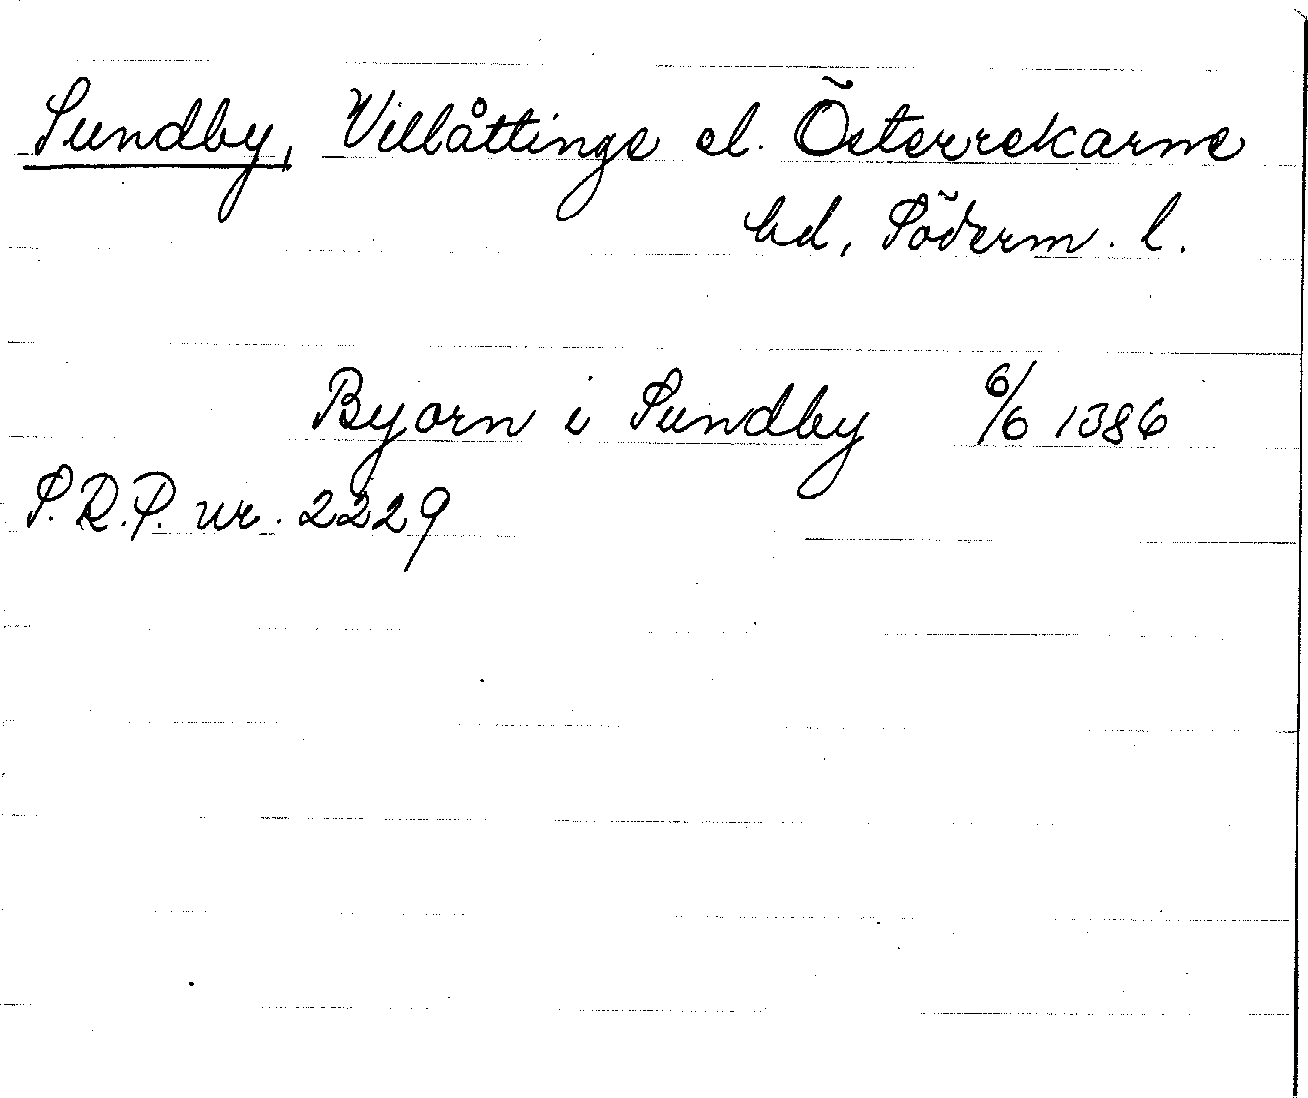 Sundby, Villåttinge el. Österrekarne
hd, Söderm. l.
Byorn i Sundby 6/6 1386
S.R.P. nr. 2229